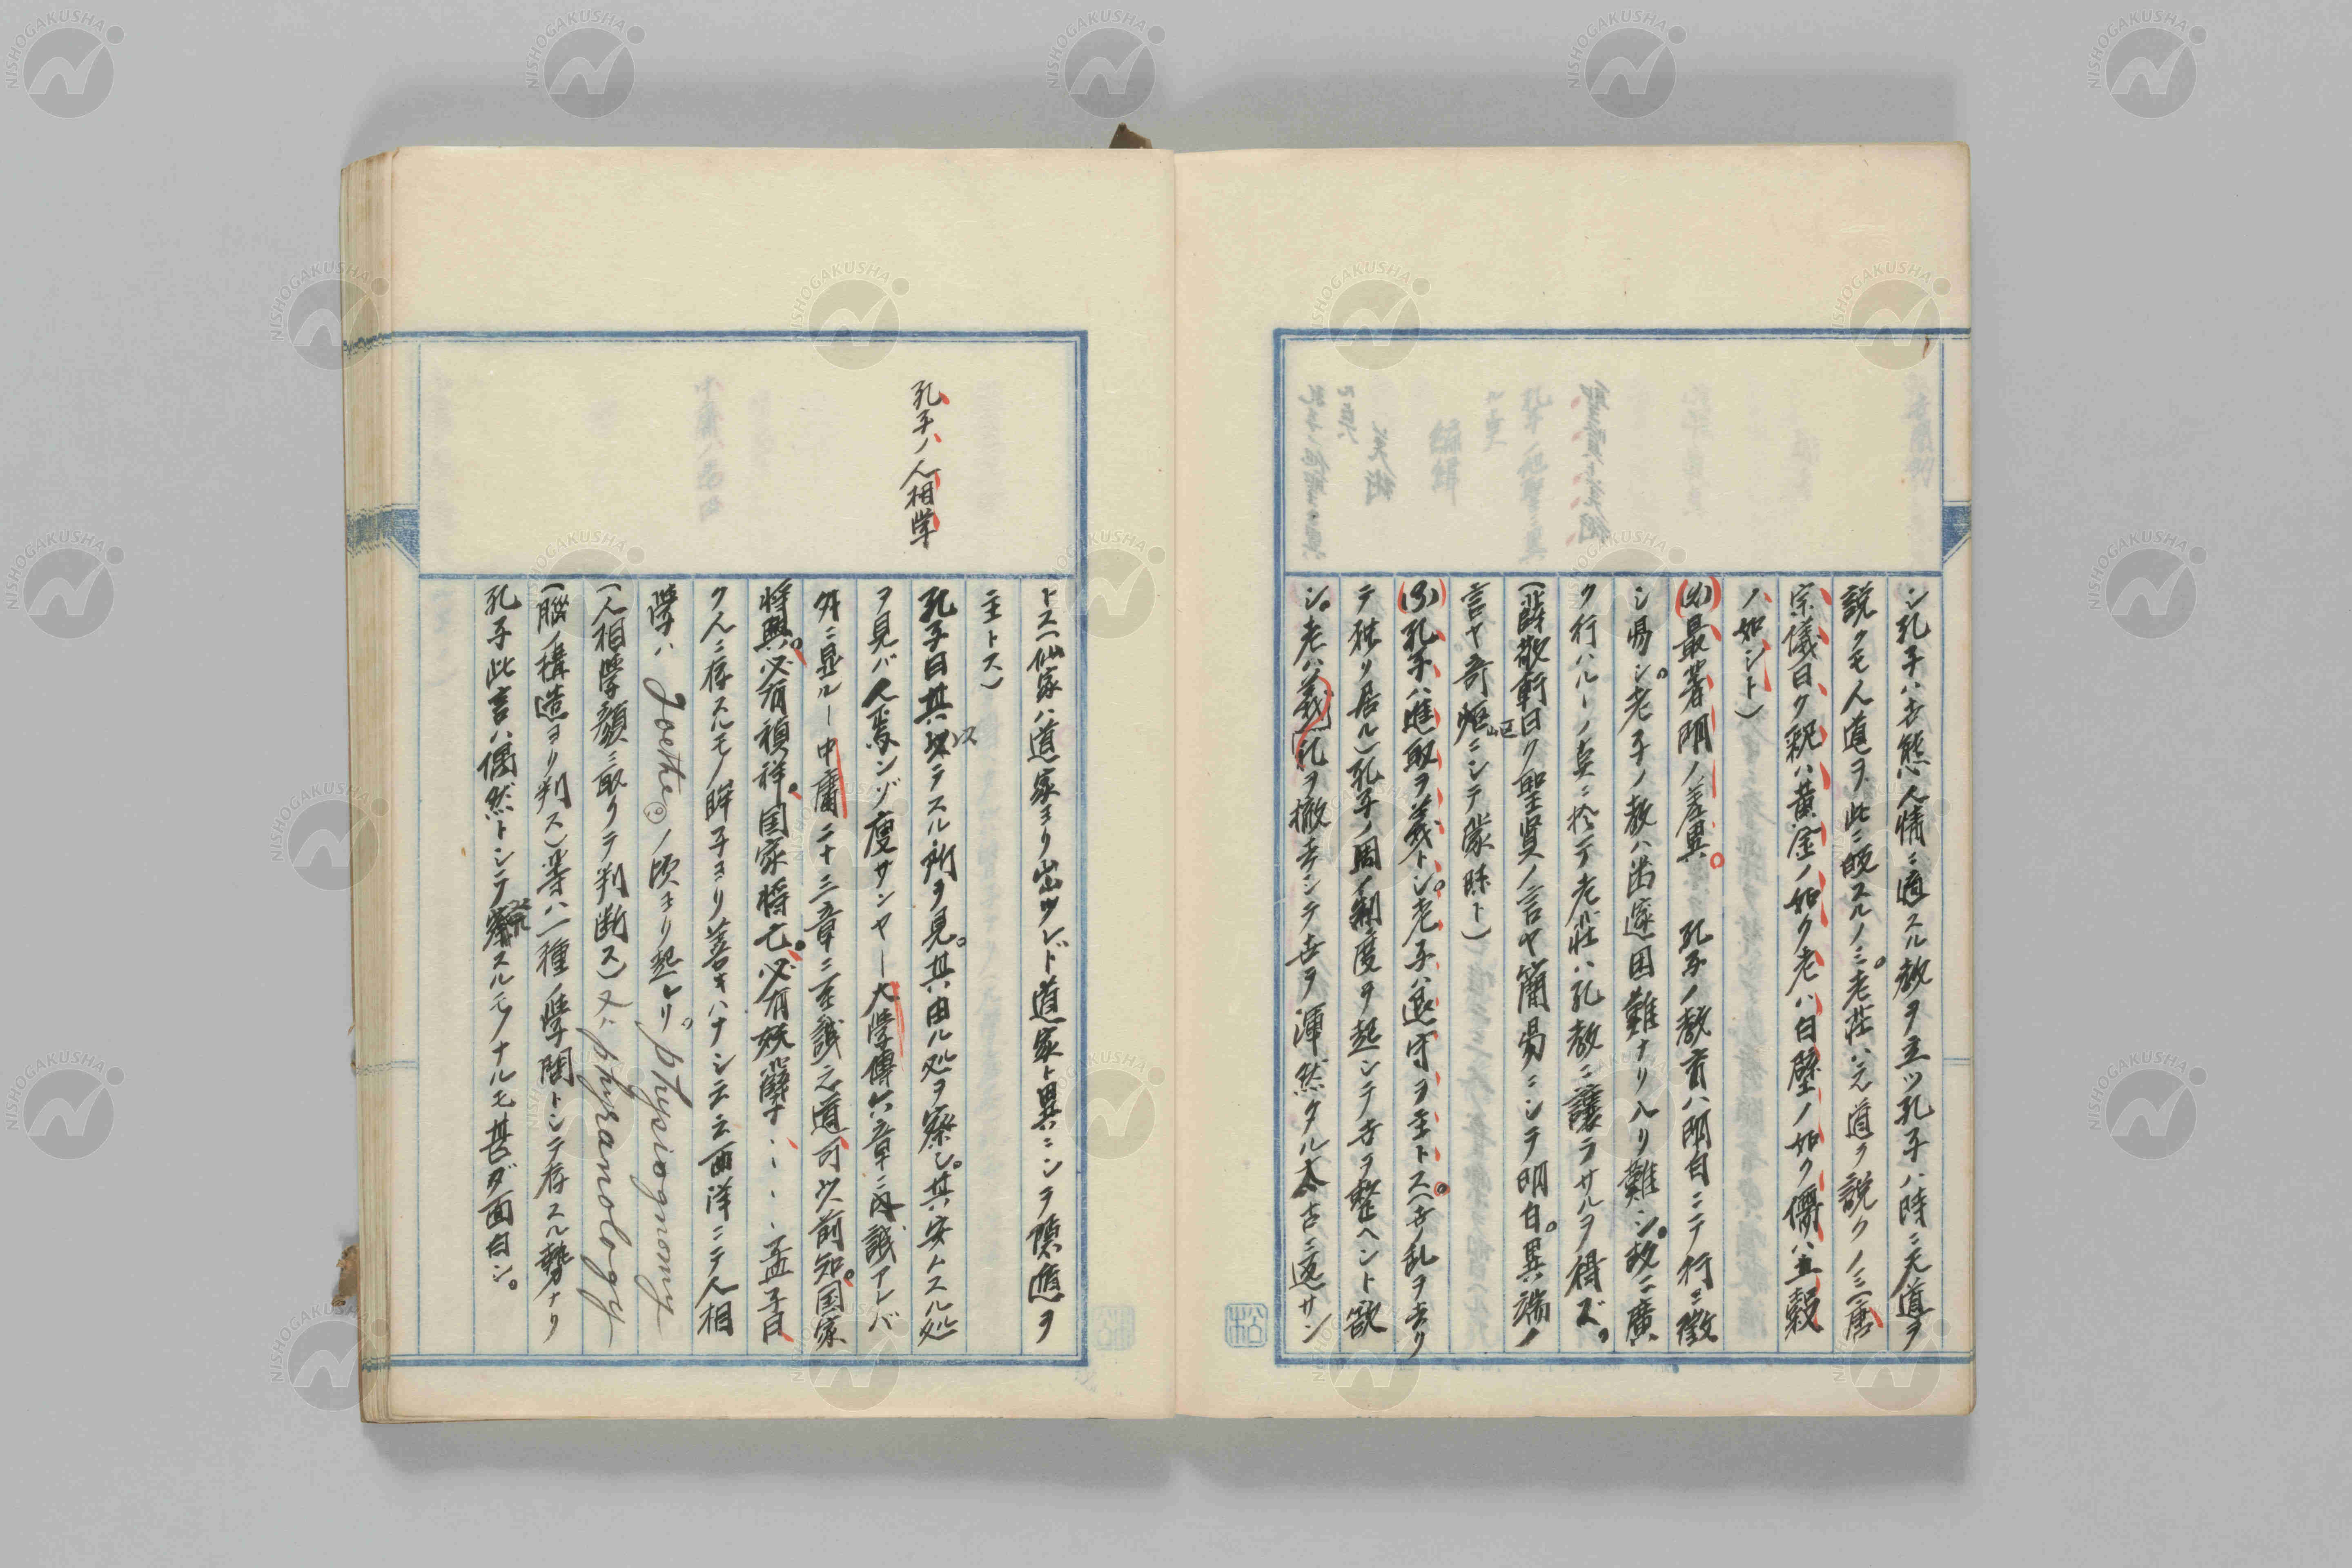 シ孔子ハ世態人情ニ適スル教ヲ立ツ孔子ハ時ニ天道ヲ
説クモ人道ヲ此ニ Sスルノミ。老荘ハ元道ヲ説クノミ(唐
宗儀曰ク釈ハ黄金ノ如ク老ハ白璧ノ如ク儒ハ五穀
ノ如シト)
最著明ノ差異。孔子ノ教育ハ明白ニテ行ニ徴
シ易シ。老子ノ教ハ迂遠困難ナリ入リ難シ。故ニ廣
ク行ハルーノ点ニ於テ老荘ハ孔教ニ譲ラサルヲ得ズ。
(薛敬軒曰ク聖賢ノ言ヤ簡易ニシテ明白。異端ノ
言ヤ奇 ニシテ隱昧ト)
(3)孔子ハ進取ヲ義トシ。老子ハ退守ヲ主トス。(世ノ乱ヲ去リ
テ独リ居ル)孔子ノ周ノ制度ヲ起シテ世ヲ整ヘント欲
シ。老ハ義礼ヲ撤去シテ世ヲ渾然タル太古ニ返サン
トス(仙家ハ道家ヨリ出ツレド道家ト異ニシテ隠遁ヲ
主トス)
孔子ノ人相学
孔子曰其以テスル所ヲ見。其由ル処ヲ察シ。其安トスル処
ヲ見バ人焉ンゾ廋サンヤー大学傳六章ニ内誠アレバ
外ニ显ルー中庸二十三章ニ至誠之道可以前知。国家
将興。必有禎祥。国家将亡。必有妖孼ナ、、、、孟子曰
ク人ニ存スルモノ眸子ヨリ善キハナシ云云西洋ニテ人相
學ハ Goethe(?)ノ頃ヨリ起レリ。physiognomy
(人相學顔ニ取クテ判断ス)又ハ phyranology
(腦ノ構造ヨリ判ス)等ハ一種ノ學問トシテ存スル勢ナリ
孔子此言ハ偶然トシテ発スルモノナルモ甚ダ面白シ。
NISHOGAKUSHA